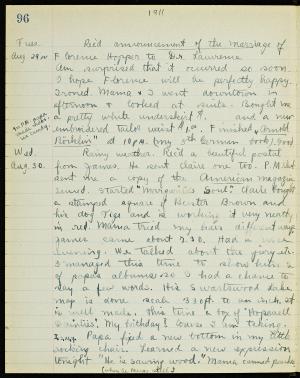 96
1911
Tues.
Aug 29
Rec'd announcement of the marriage of
Florence Hooper to Dr. Lawrence
Am surprised that it occurred so soon.
I hope Florence will be perfectly happy.
Ironed. Mama & I went downtown in
afternoon & looked at suits. Bought me
a pretty white underskirt and a
embroidered waist Finished "Arnold
at 10 P.M. my 5th German book. Good
Wed.
Aug. 30.
Rainy weather. Rec'd a beautiful postal
from James. He sent Claire one too.
sent me a copy of the American magazine
Started "Soul". Claire bought
a stamped square of Buster Brown and
his dog Tige and is working it very neatly
in red. Mama tried my hair different ways
James came about 7.30. Had a nice
evening. We talked about the
I managed this time to show him
of papa's albums so I had a chance to
say a few words. His Swarthwood Lake
map is done scale 330 ft. to an inch. It
is well made. This time a box of "Hopewell
Dainties". My birthday! Course I am taking.
Papa fixed a new bottom in my little
rocking chair. Learned a new expression
tonight "He is sawing wood." Mama canned